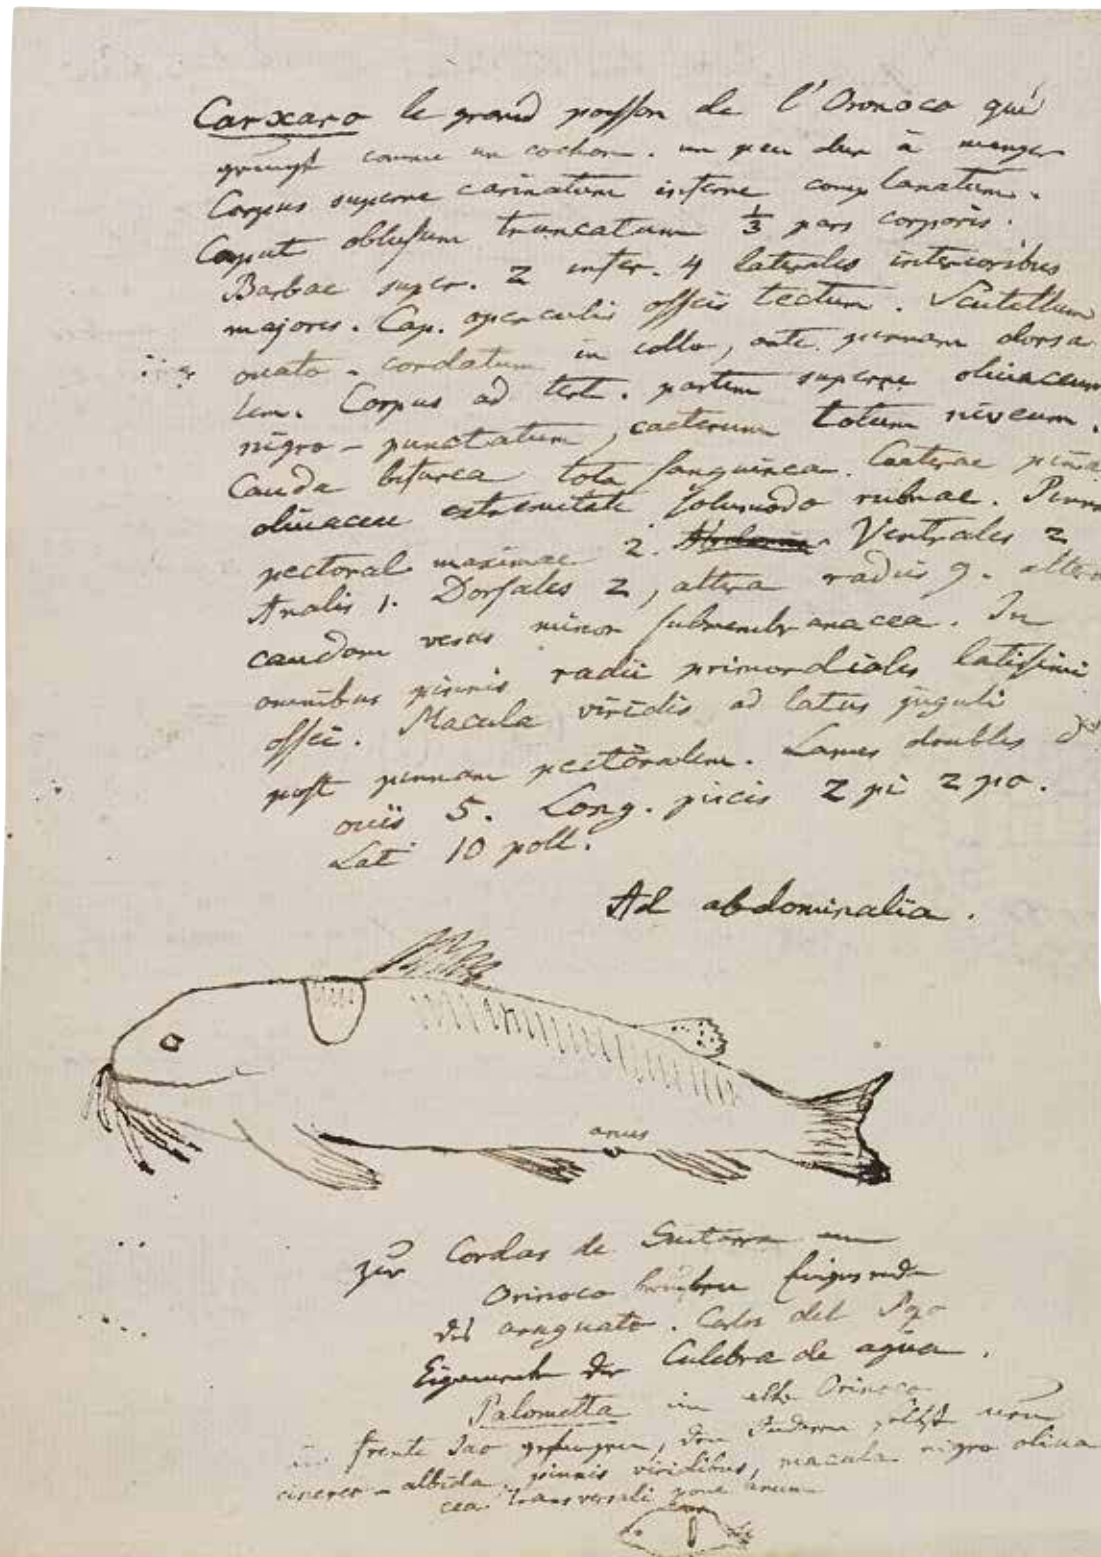 Carxaro le grand poisson de l'Oronoco qui
comme un cochon. un peu dur à manger
Corpus superne carinatum inferne complanatum.
Caput obtusum truncatum 1/3 pars corporis.
Barbae super. 2 infer. 4 laterales interioribus
majores. Cap. operculis osseis tectum. Scutellum
ovato-cordatum in collo, ante pinnam dorsa
lem. Corpus ad tert. partem superne olivaceum
nigro-punctatum, caeterum totum niveum.
Cauda bifurca tota sanguinea. Caeterae pinnae
olivaceae extremitate solummodo rubrae. Pinnae
pectoral maximae 2. Ventrales 2
Analis 1. Dorsales 2, altera radiis 9. altera
caudam versus minor submembranacea. In
omnibus pinnis radii primordiales latissimi
ossei. Macula viridis ad latus juguli
post pinnam pectoralem. Lames doubles
5. Long. piscis 2 pi 2 po.
Lat 10 poll.
Ad abdominalia.
anus
zur Cordas de Guitarra am
Orinoco
des araguato. Carlos del Pozo
der Culebra de agua.
Palometta im Orinoco
frente Jao gefangen, den Indern selbst neu
cinereo-albida, pinnis viridibus, macula nigro oliva
cea transversali pone anum